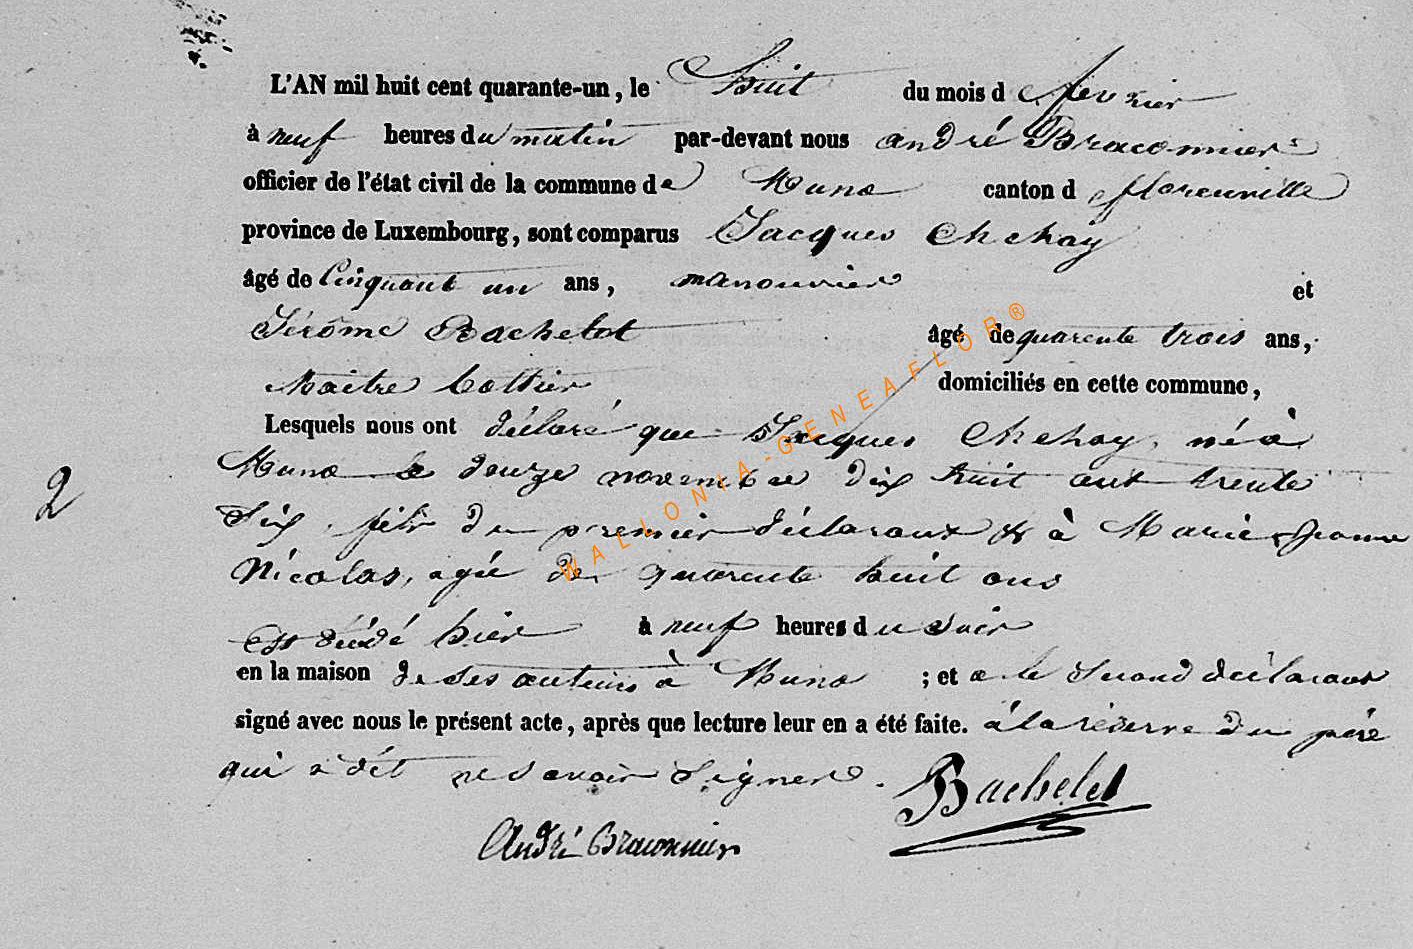 L'AN mil huit cent quarante-un, le huit du mois d fevrier
à neuf heures du matin par-devant nous andré Braconnier
officier de l'état civil de la commune de Muno canton d florenville
province de Luxembourg, sont comparus Jacques Chehay
âgé de Cinquant un ans, manouvrier et
Jérôme Bachelot âgé de quarente trois ans,
Maitre domiciliés en cette commune,
Lesquels nous ont déclaré que Jacques Chehay, né à
Muno le douze novembre dix huit cent trente
Six, fils du premier déclarant & à Marie Jeanne
2
Nicolas, agée de quarente huit ans
Est décédé hier à neuf heures du soir
en la maison de ses auteurs à Muno ; et a le second déclarant
signé avec nous le présent acte, après que lecture leur en a été faite. à la réserve du père
qui a dit ne savoir signer.
Bachelet
André Braconnier
WALLONIA-GENEAFLOR®